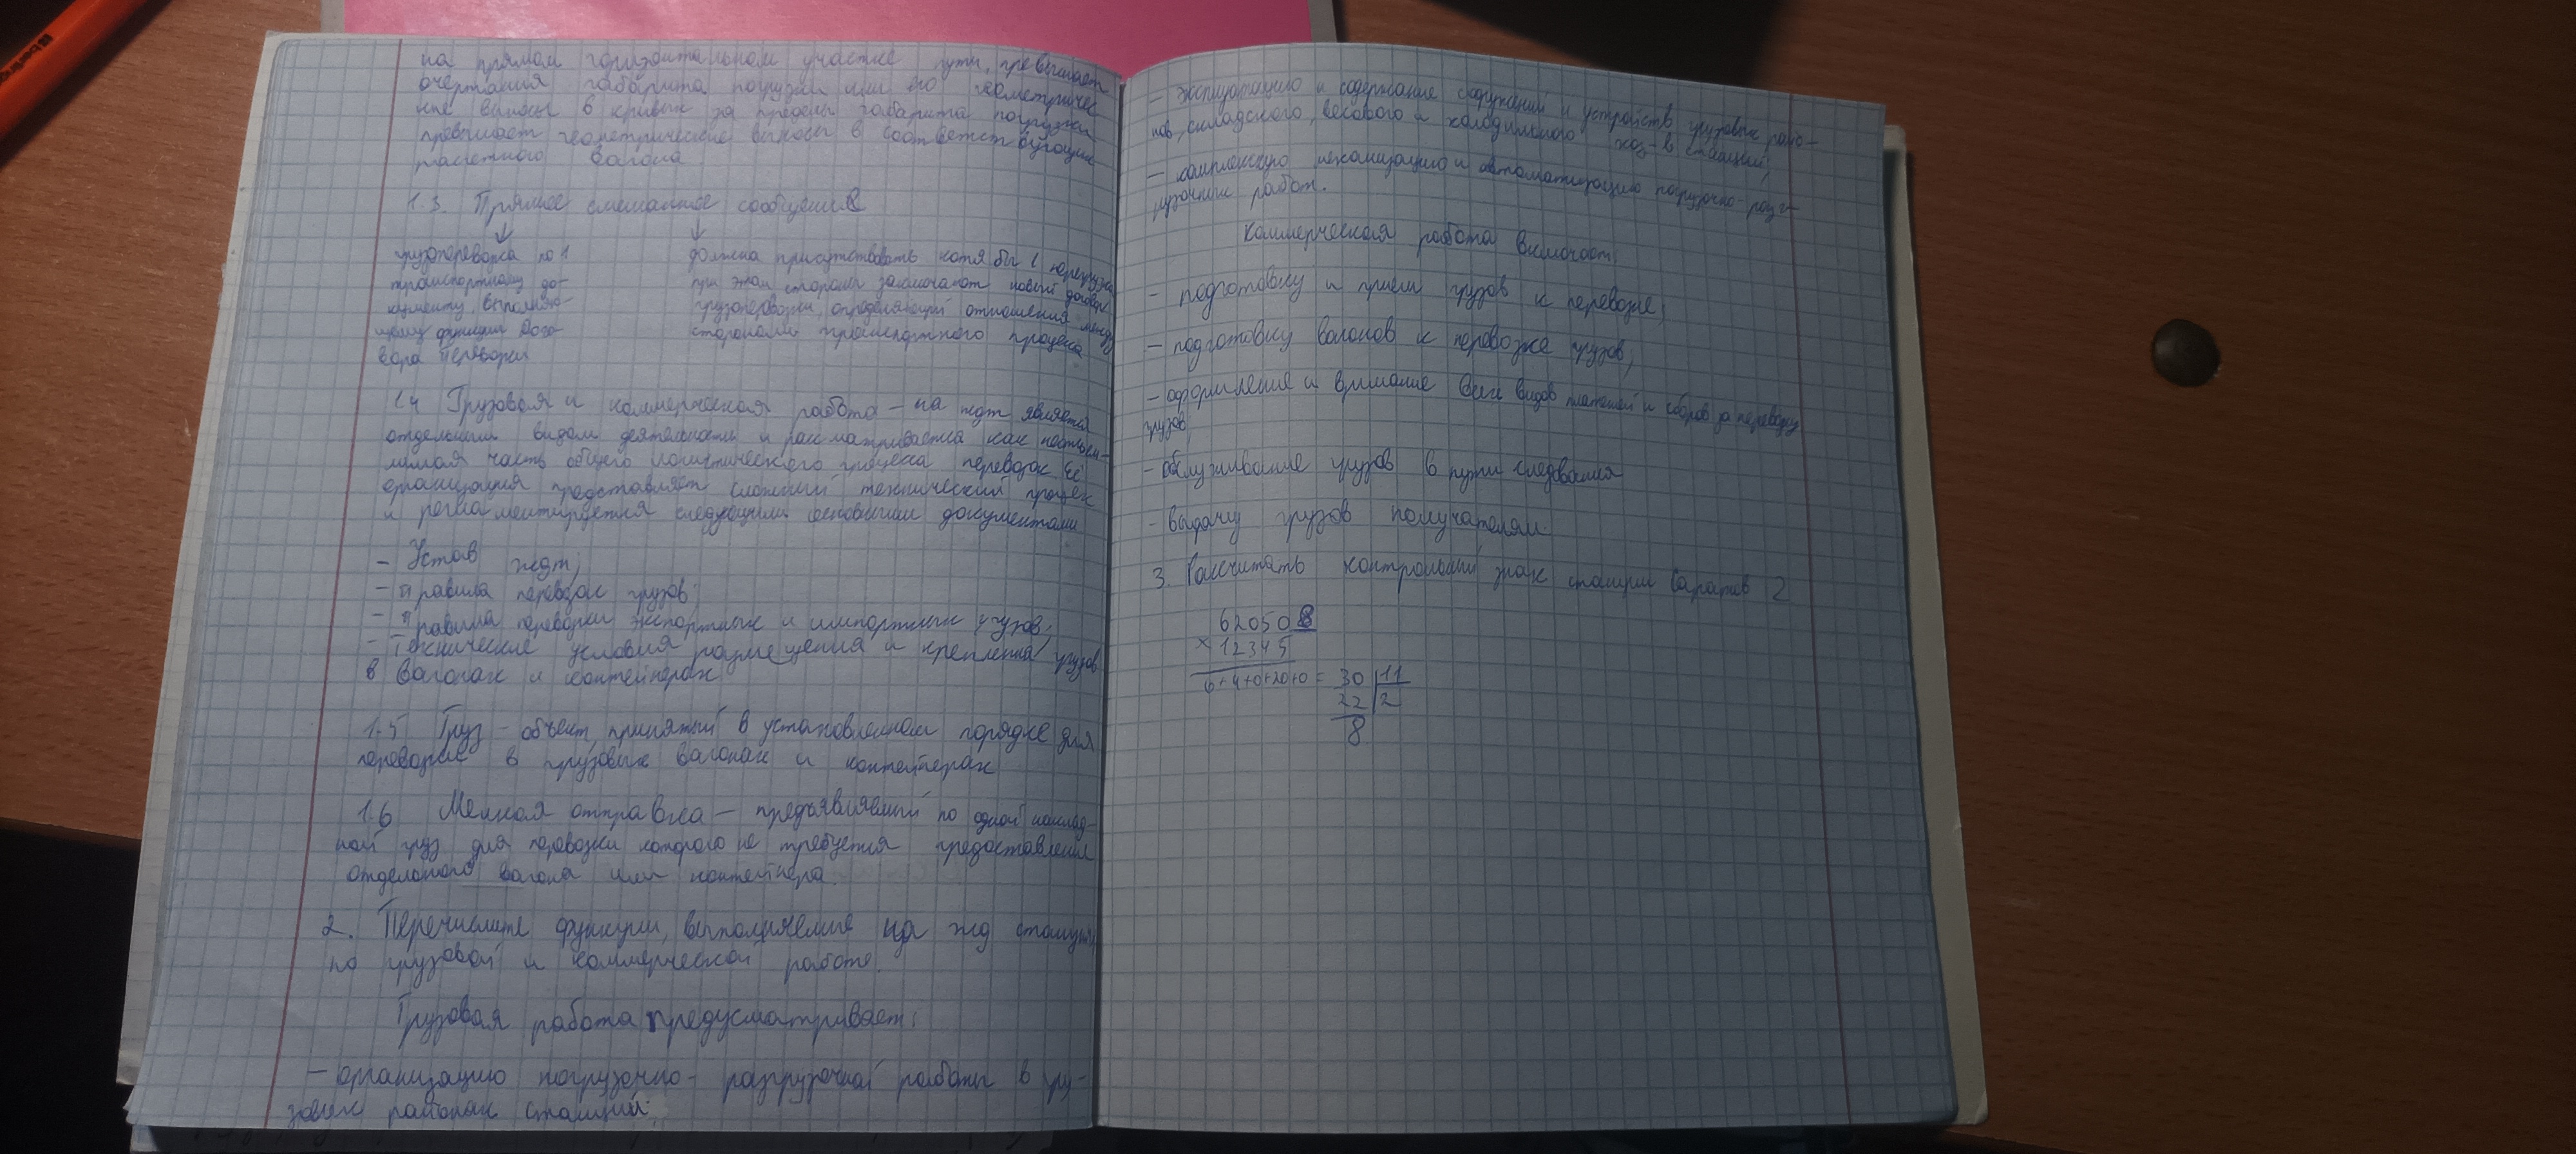 на прямом горизонтальном участке пути, превышает
очертания габарита погрузки или его геометричес
кие выносы в кривых за пределы габарита погрузки
превышает геометрические выносы в соответствующие
расчетного вагона.
1.3. Прямое смешанное сообщение
грузоперевозка по 1
транспортному до-
кументу, выполняю-
щему функции дого-
вора перевозки
должна присутствовать хотя бы 1 перегрузка
при этом стороны заключают новый договор
грузоперевозки, определяющий отношения между
сторонами транспортного процесса
1.4 Грузовая и коммерческая работа – на ждт является
отдельным видом деятельности и рассматривается как неотъем-
лемая часть общего логистического процесса перевозок. Её
организация представляет сложный технический процесс
и регламентируется следующими основными документами
- Устав ждт;
- Правила перевозок грузов;
- Правила перевозки экспортных и импортных грузов;
- Технические условия размещения и крепления грузов
в вагонах и контейнерах
1.5 Груз - объект, принятый в установленном порядке для
перевозки в грузовых вагонах и контейнерах
1.6 Мелкая отправка – предъявляемый по одной наклад-
ной груз для перевозки которого не требуется предоставления
отдельного вагона или контейнера.
2. Перечислите функции, выполняемые на жд станции
по грузовой и коммерческой работе.
Грузовая работа предусматривает:
– организацию погрузочно-разгрузочной работы в гру-
зовых районах станций;
– эксплуатацию и содержание сооружений и устройств грузовых райо-
нов, складского, весового и холодильного хоз-в станций;
– комплексную механизацию и автоматизацию погрузочно-разг-
рузочных работ.
Коммерческая работа включает:
- подготовку и прием грузов к перевозке;
- подготовку вагонов к перевозке грузов;
- оформление и взимание всех видов платежей и сборов за перевозку
грузов;
- обслуживание грузов в пути следования
- выдачу грузов получателям.
3. Рассчитать контрольный знак станции Саратов 2
620508
× 12345
6+4+0+20+0 = 30 11
22 2
8